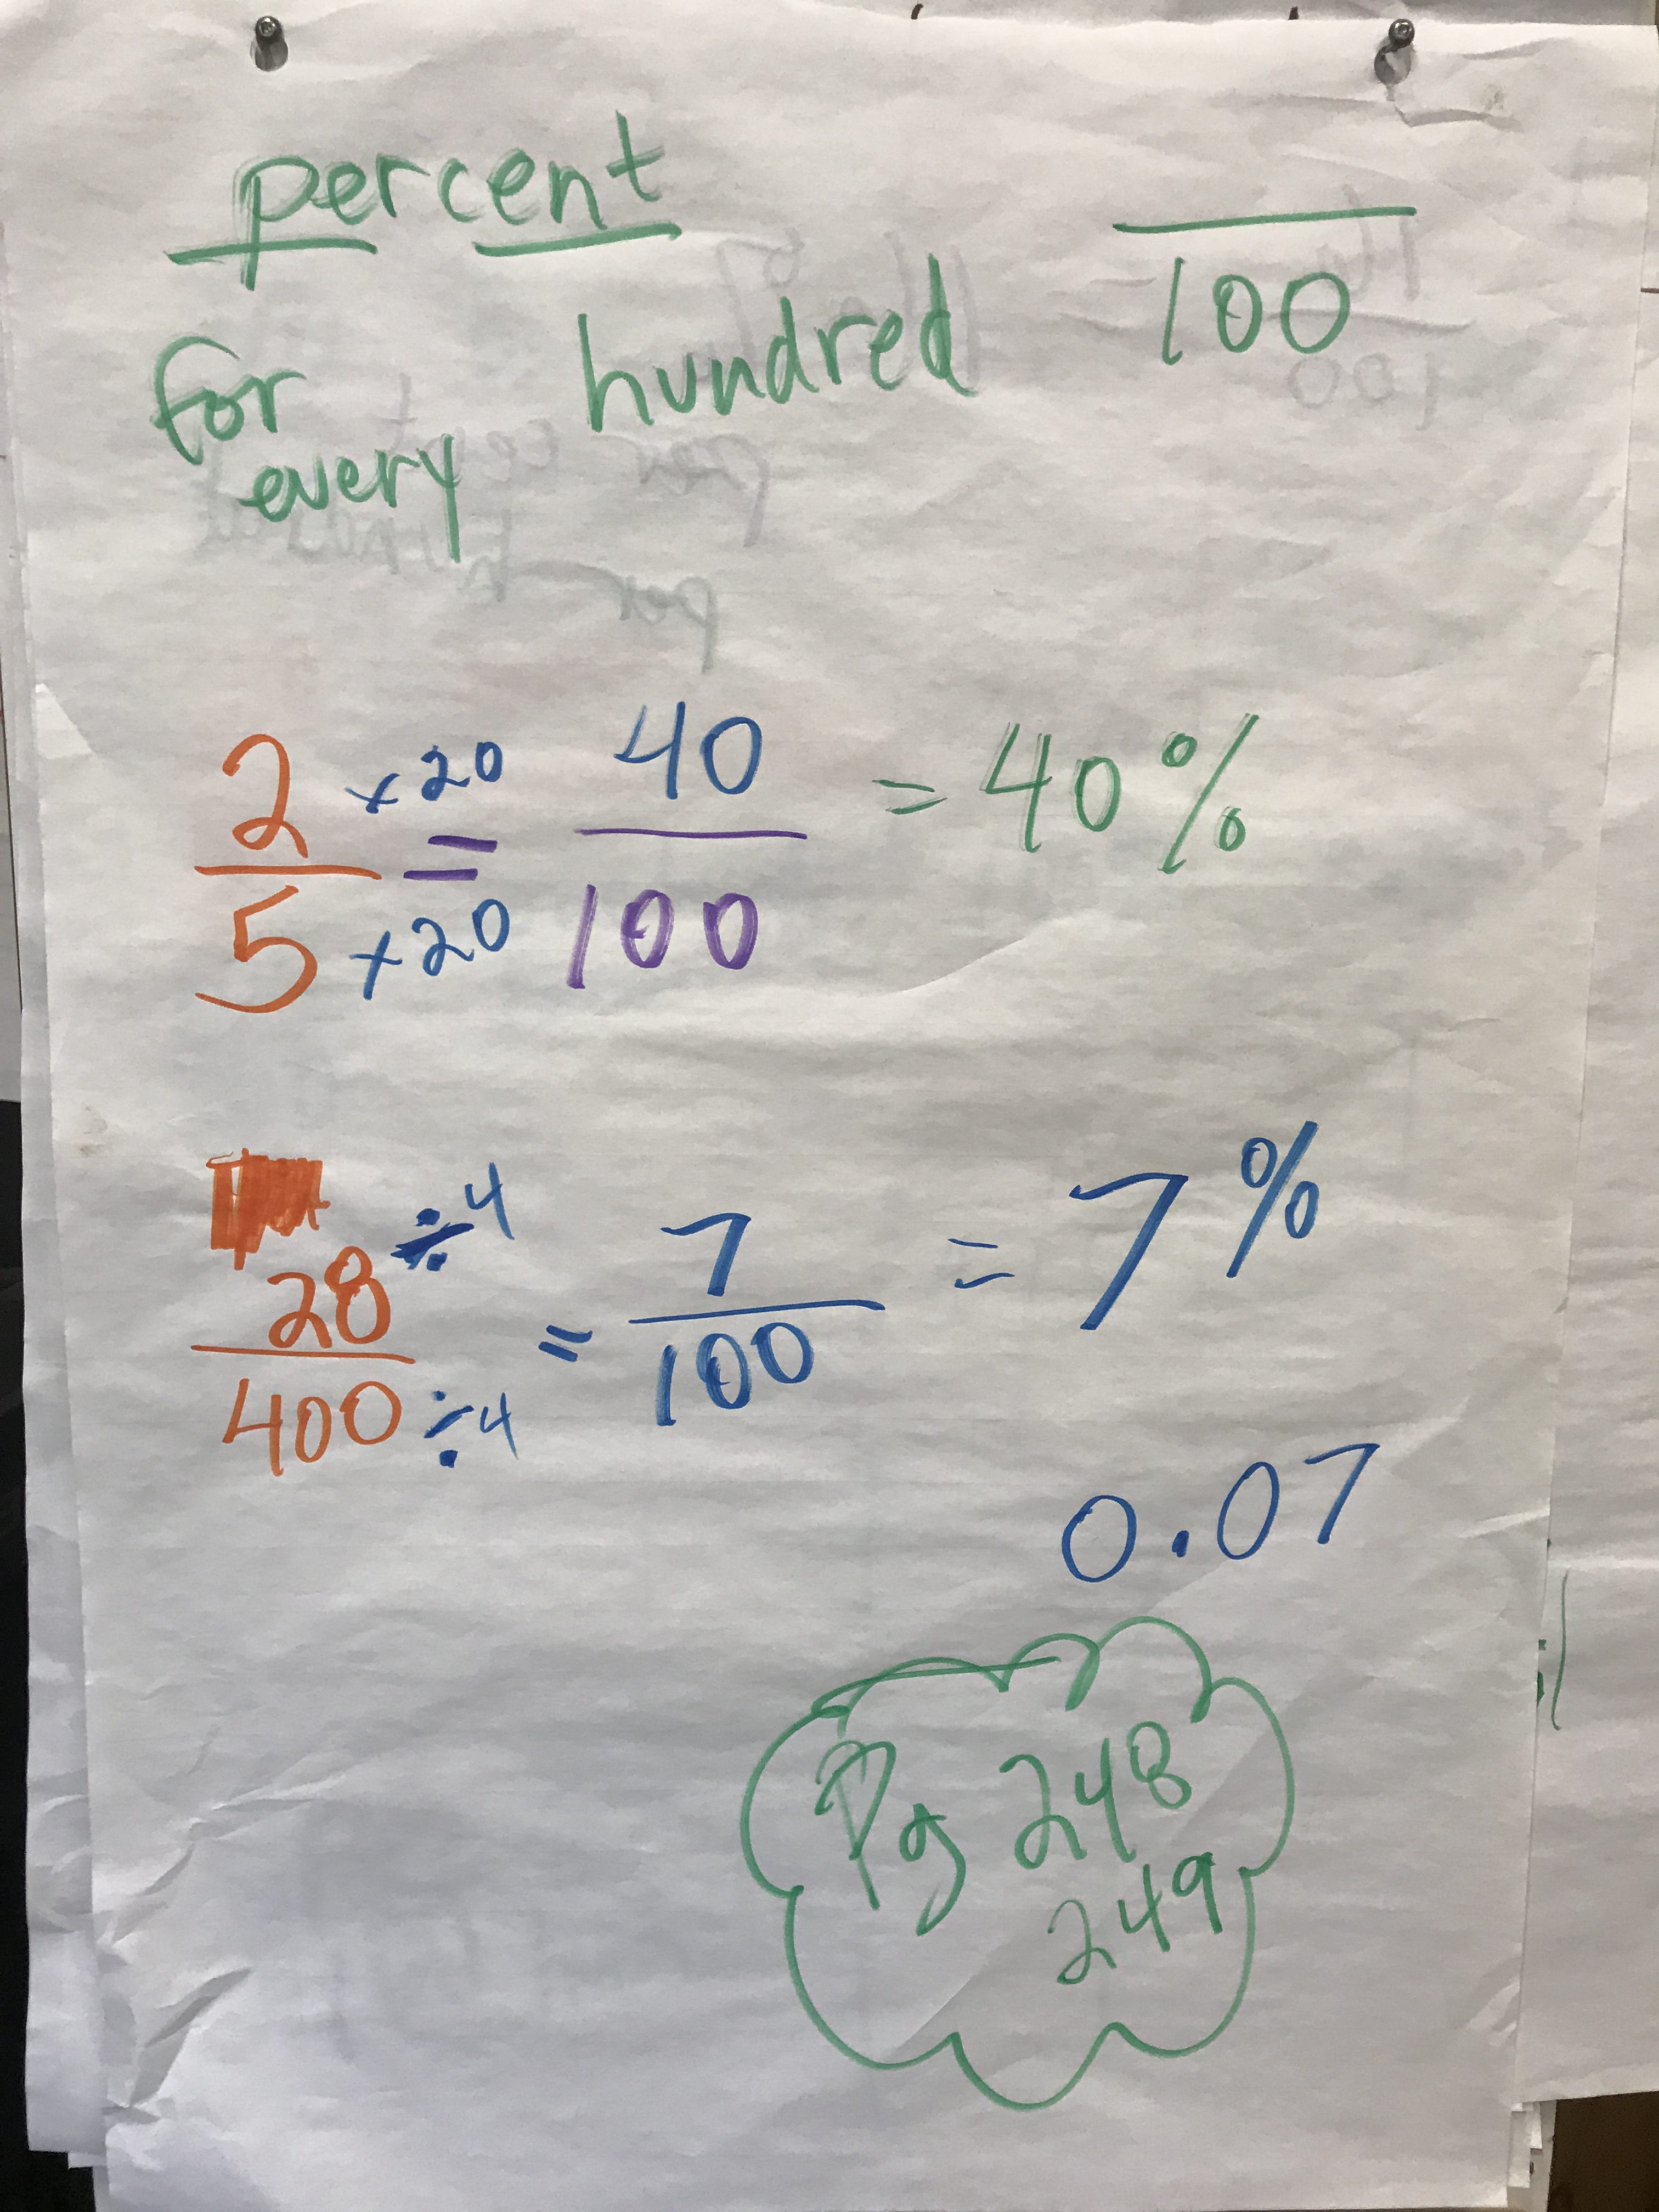 percent
for every hundred
/100
2/5 × 20 / × 20 = 40/100 = 40%
28/400 ÷ 4 / ÷ 4 = 7/100 = 7%
0.07
Pg 248
249